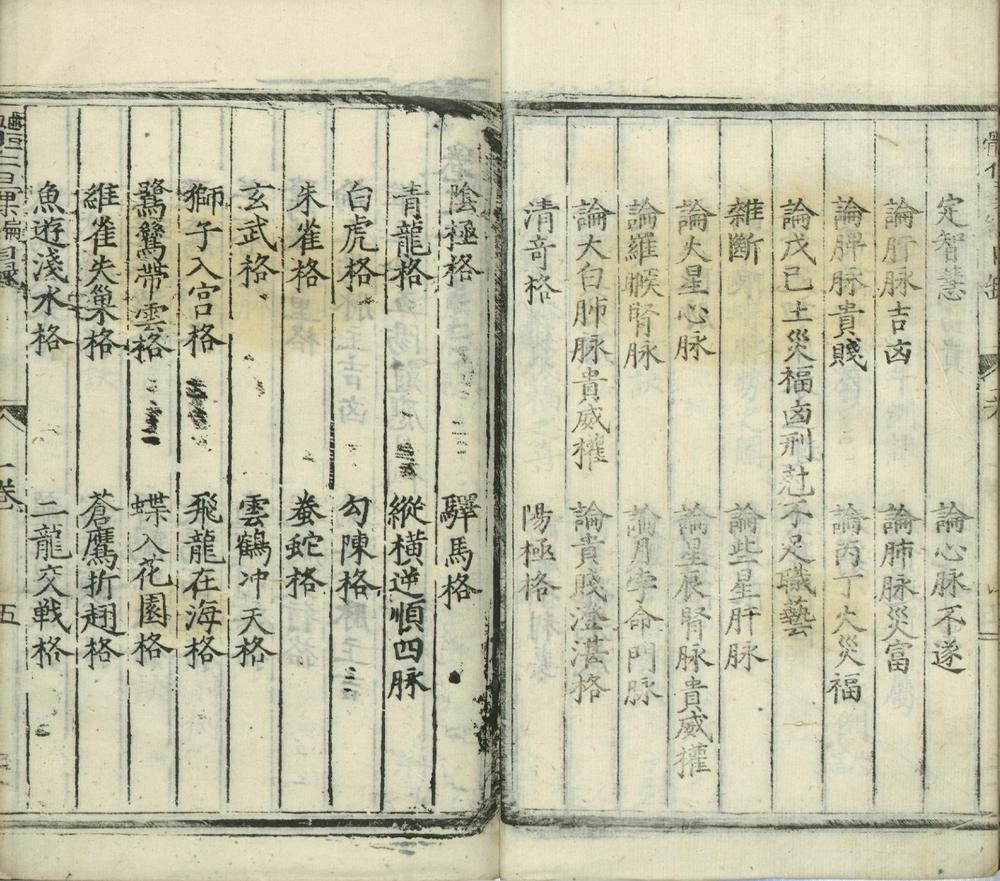 定智慧 論心脉不遂
論肝脉吉凶 論肺脉災富
論脾脉貴賤 論丙丁火災福
論戊己土災福凶刑愆不足職藝
雜斷 論些星肝脉
論火星心脉 論星辰腎脉貴威權
論羅睺腎脉 論月孛命門脉
論太白肺脉貴威權 論貴賤澄湛格
清奇格 陽極格
陰極格 驛馬格
青龍格 縱橫逆順四脉
白虎格 勾陳格
朱雀格 螣蛇格
玄武格 雲鶴冲天格
獅子入宮格 飛龍在海格
鷺鷥帶雲格 蝶入花園格
維雀失巢格 蒼鷹折翅格
魚遊淺水格 二龍交戰格
一卷 五